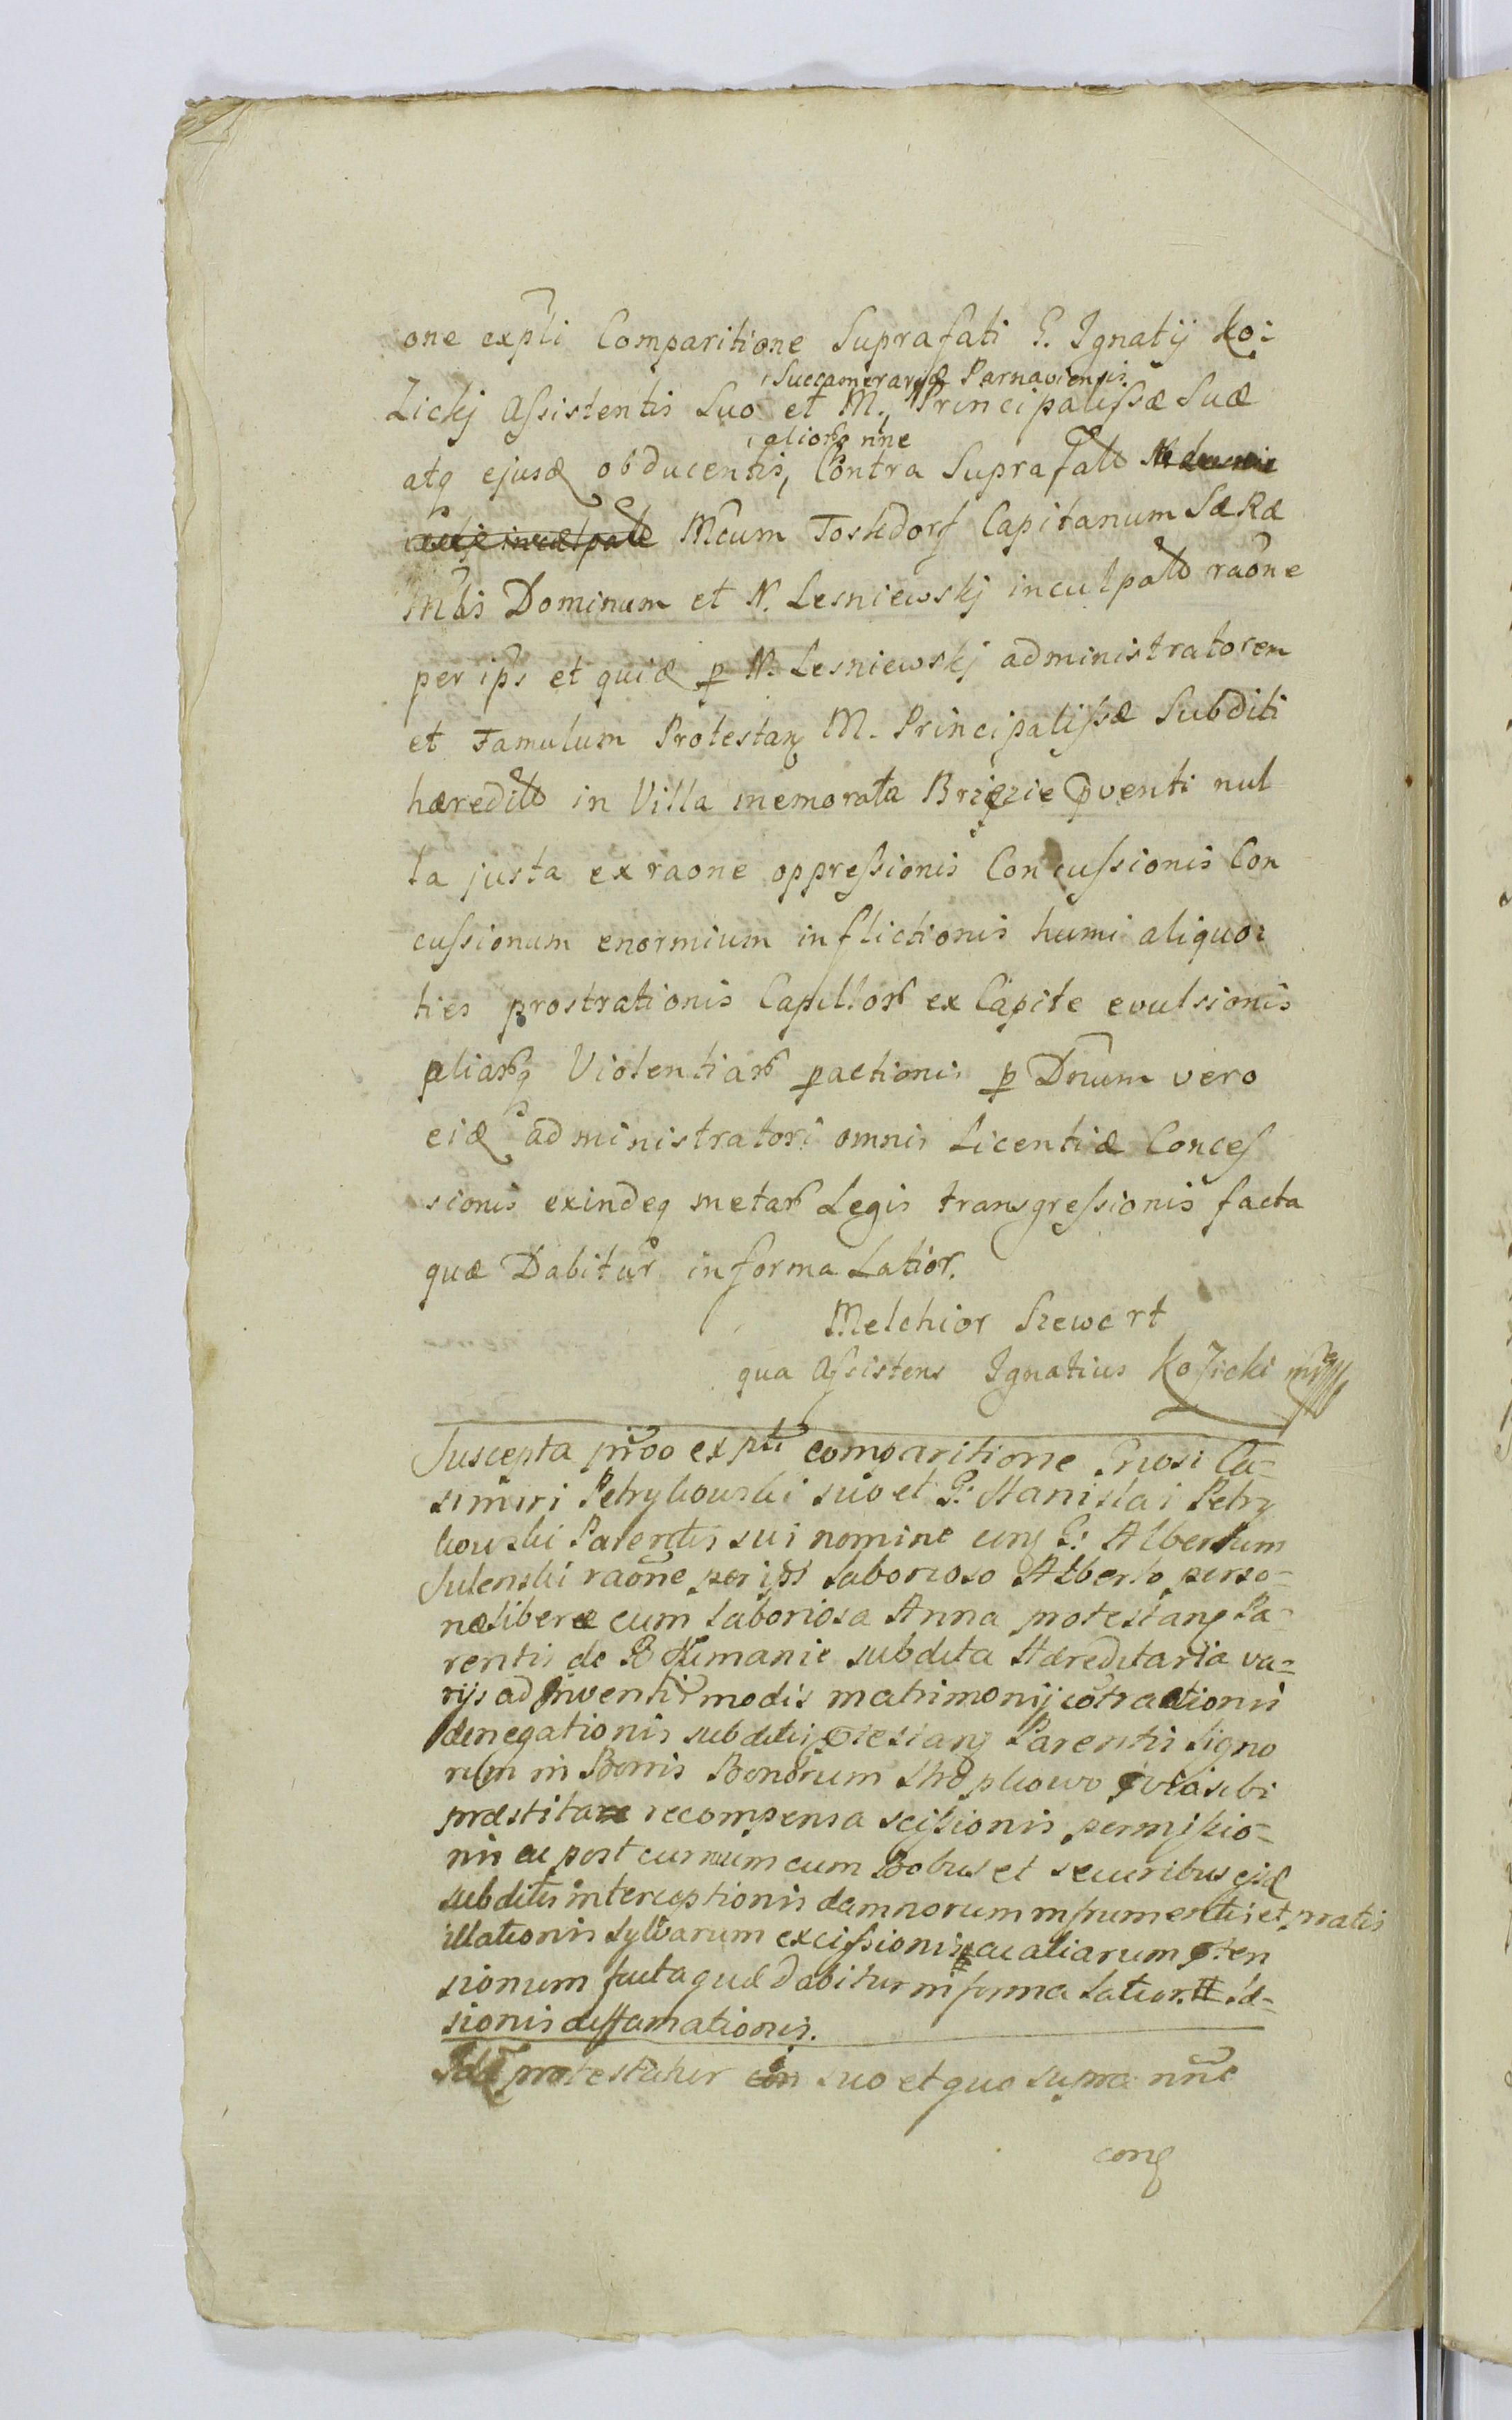 one expli Comparitione Suprafati G. Ignatij Ko:
Succamerariæ Parnaviensis
Zickj Assistentis Suo et M. Principalissæ Suæ
aliorq nne
atq ejusd obducentis, Contra Suprafatt
Mcum Tosedorf Capitanum SæRæ
Mtis Dominum et N. Lesniewskj inculpatt raone
per ips et quid p N. Lesniewskj administratorem
et Famulum Protestan M. Principalissæ Subditi
hæreditt in Villa memorata Brzezie pventi nul
la justa ex raone oppressionis Concussionis Con
cussionum enormium inflictionis humi aliquo:
ties prostrationis Capillor ex Capite evulsionis
aliarq Violentiar pactionis p Dnum vero
eid administratori omnis Licentiæ Conces
sionis exindeq metar Legis transgressionis facta
quæ Dabitur in forma Latior.
Melchior Szewert
qua Assistens Ignatius Kozicki mp
Suscepta proo expli comparitione Gnosi Ca-
simiri Petrykowski suo et G: Stanislai Petry
kowski Parentis sui nomine con G: Albertum
Sulenski raone per ips laborioso Alberto perso-
næ liberæ cum laboriosa Anna protestan Pa-
rentis de subdita Hæreditaria va-
rijs ad inventis modis matrimonij cotractionis
denegationis subditis otestan Parentis ligno
rum in Bonis Bonorum sibi
præstita recompensa scissionis permissio-
nis ac post cum Bobus et securibus ejsd
subditis interceptionis damnorum in frumentis et pratis
illationis sylvarum excissionis ac aliarum oten
sionum facta quæ dabitur in forma latior. # læ-
sionis diffamationis.
Idem protestatur con suo et quo supra nne
con